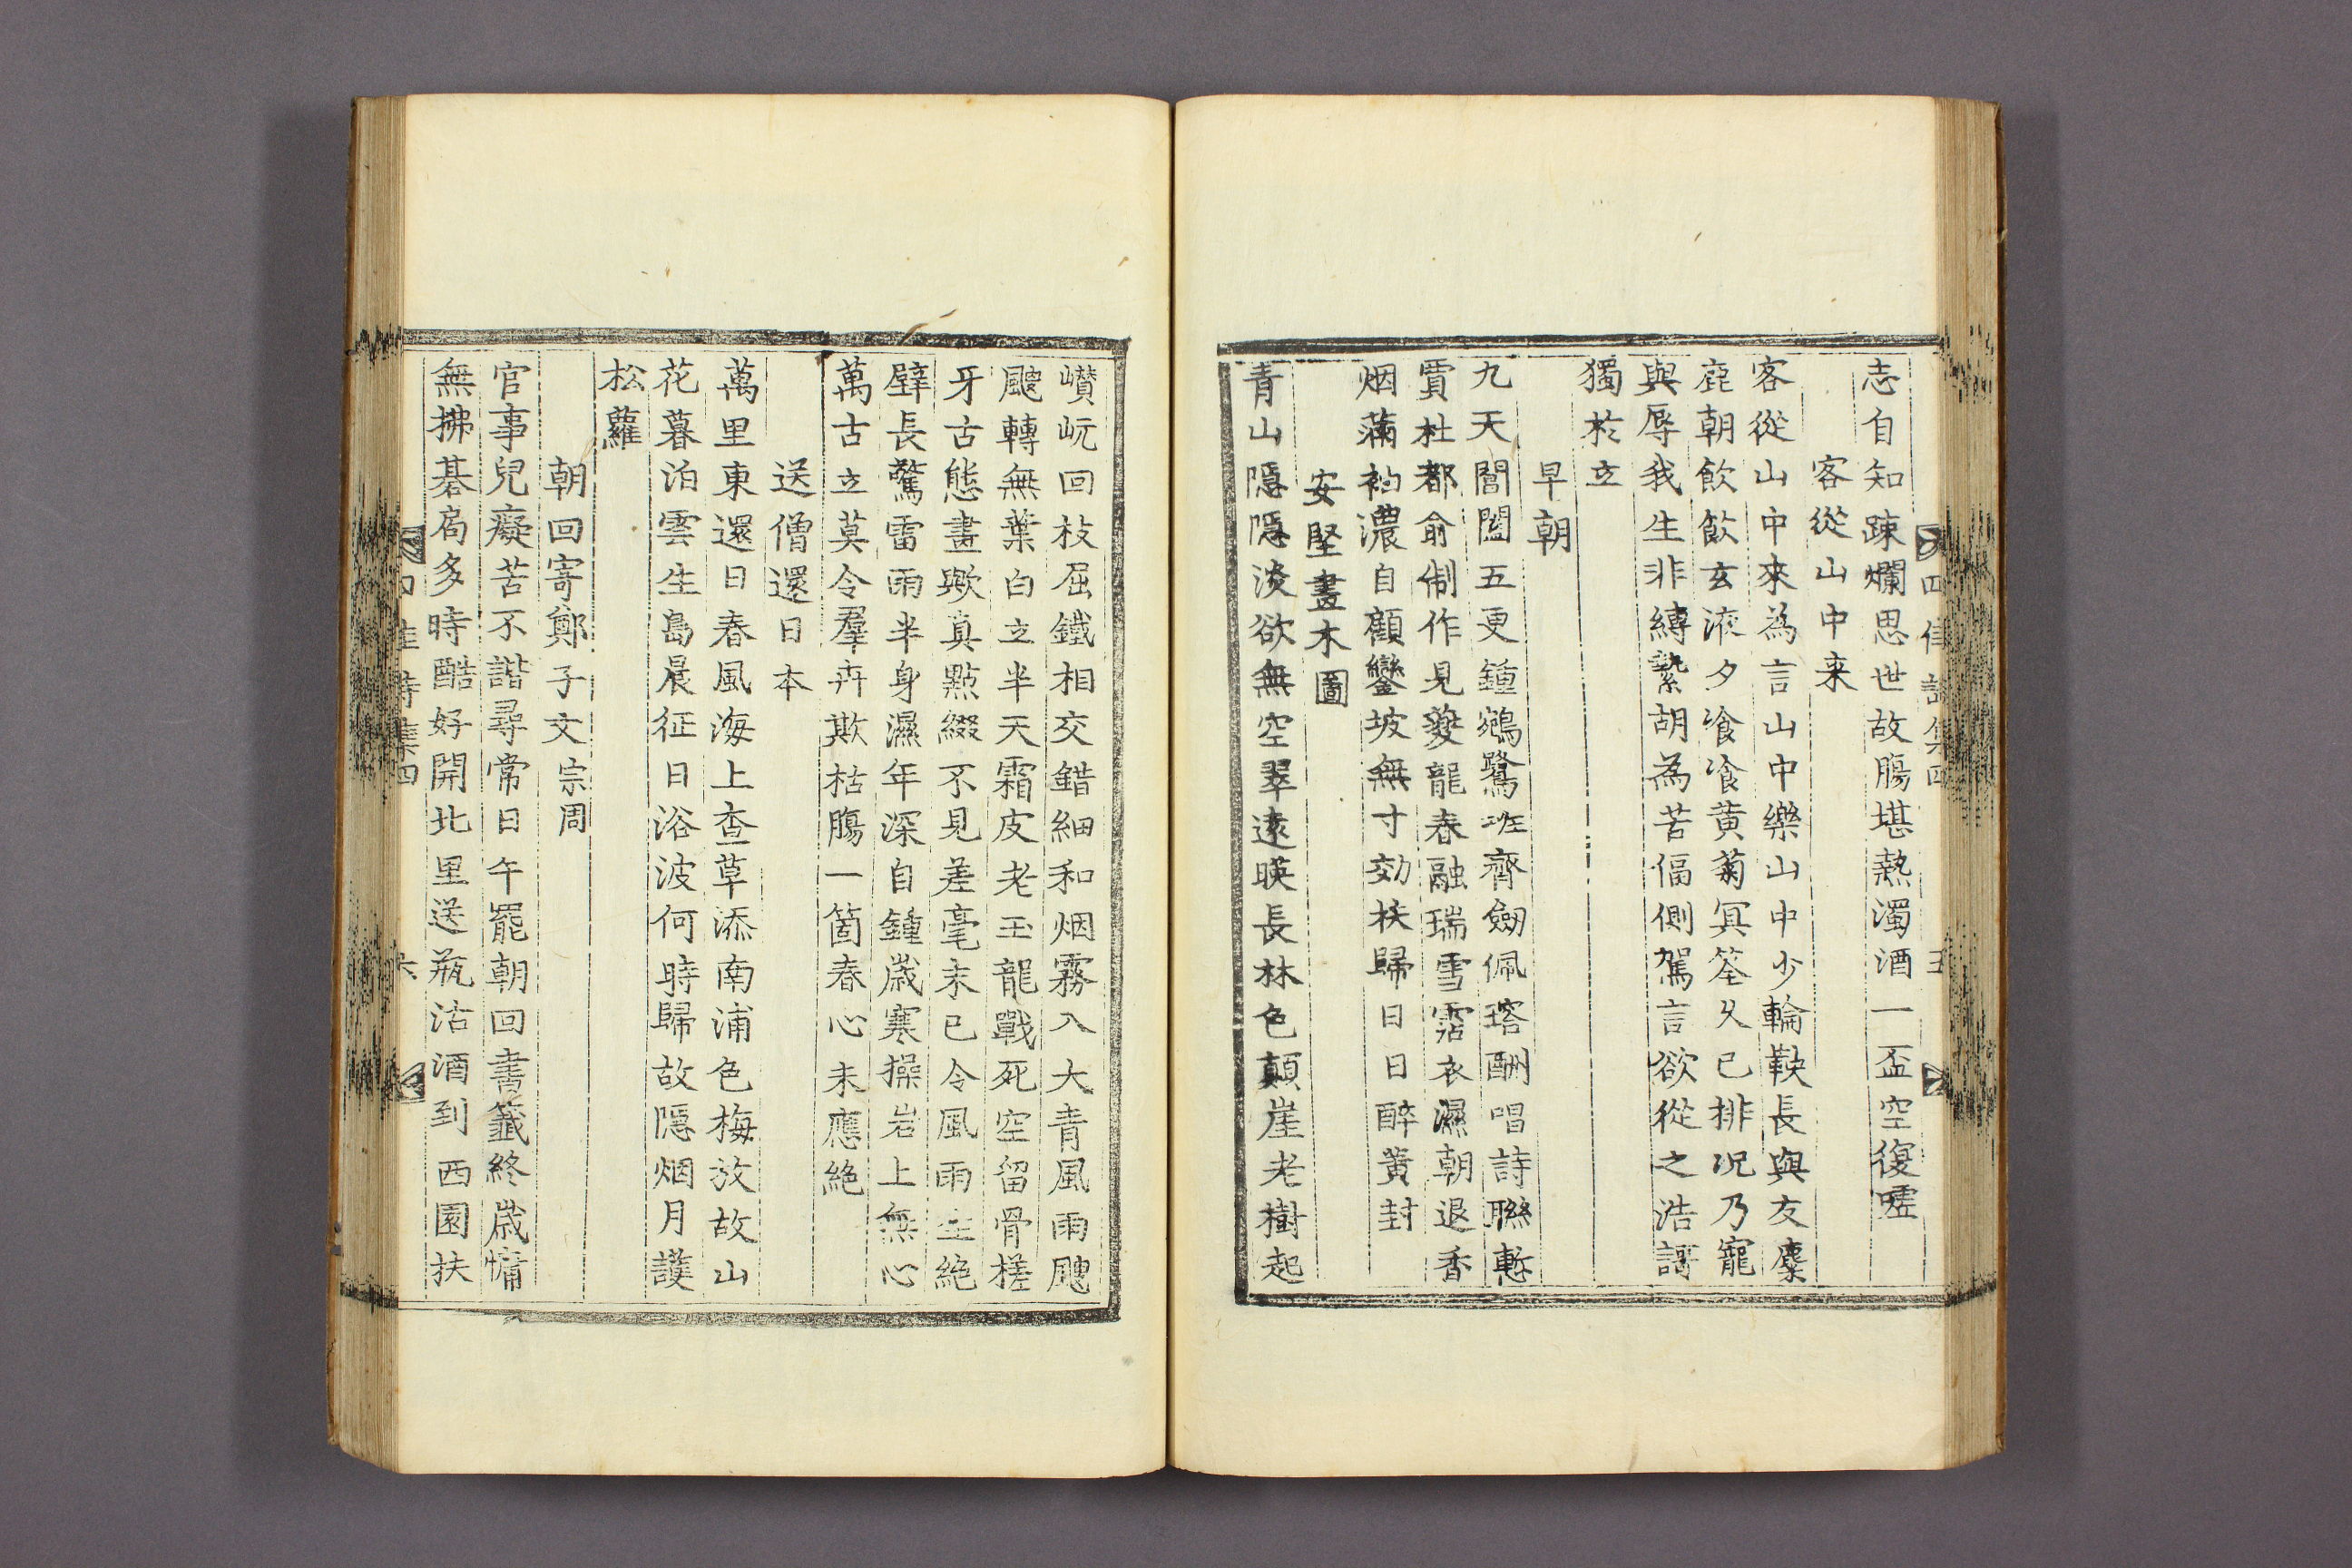 四佳詩集四
五
志自知踈爛思世故膓堪熱濁酒一盃空復嘘
客從山中来
客從山中來為言山中樂山中少輪鞅長與友麋
鹿朝飲飲玄液夕飡飡黄菊冥筌久已排况乃寵
與辱我生非縛縶胡為苦偪側駕言欲從之浩謌
獨於立
早朝
九天閶闔五更鍾鵷鷺班齊劔佩瑢酬唱詩聯慙
賈杜都俞制作見夔龍春融瑞雪霑衣濕朝退香
烟滿袖濃自顧鑾坡無寸効扶歸日日醉黄封
安堅畫木圖
青山隱隱淡欲無空翠遠暎長林色顛崖老樹起
巑岏回枝屈鐵相交錯細和烟霧入大青風雨颼
颼轉無葉白立半天霜皮老玉龍戰死空留骨槎
牙古態畫歟真點綴不見差毫末已令風雨生絶
壁長驚雷雨半身濕年深自鍾歲寒操岩上無心
萬古立莫令羣卉欺枯膓一箇春心未應絶
送僧還日本
萬里東還日春風海上查草添南浦色梅放故山
花暮泊雲生島晨征日浴波何時歸故隱烟月護
松蘿
朝回寄鄭子文宗周
官事兒癡苦不諧尋常日午罷朝回書籤終歲慵
無拂碁局多時酷好開北里送瓶沽酒到西園扶
四佳詩集四
六